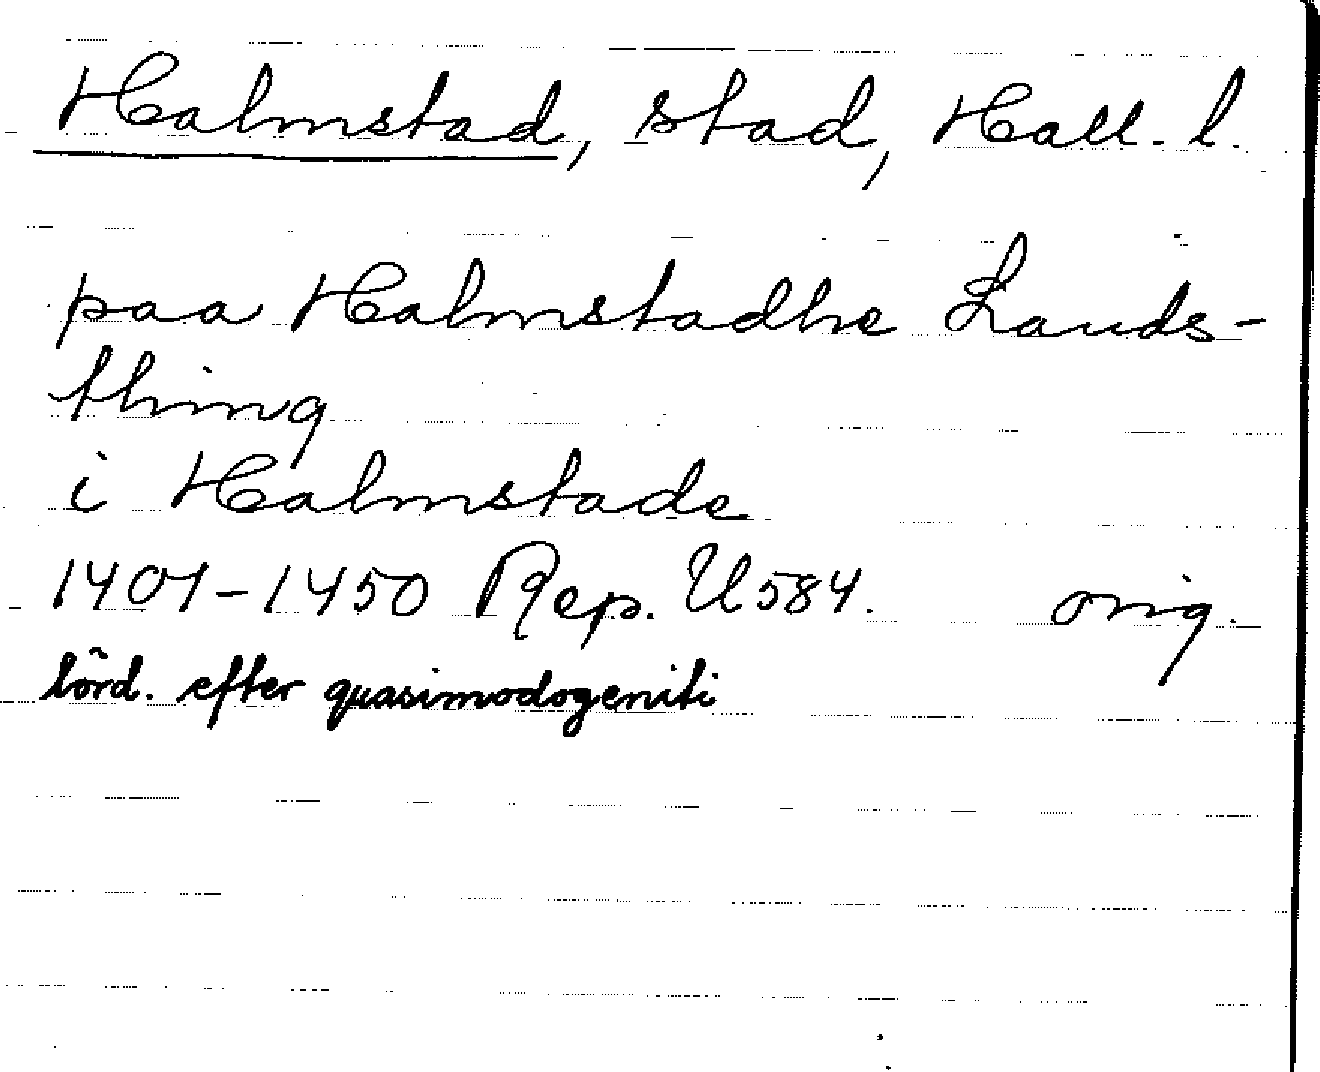 Halmstad, stad, Hall. l.
paa Halmstadhe Lands-
thing
i Halmstade
1401-1450 Rep. U584. orig.
lörd. efter quasimodogeniti